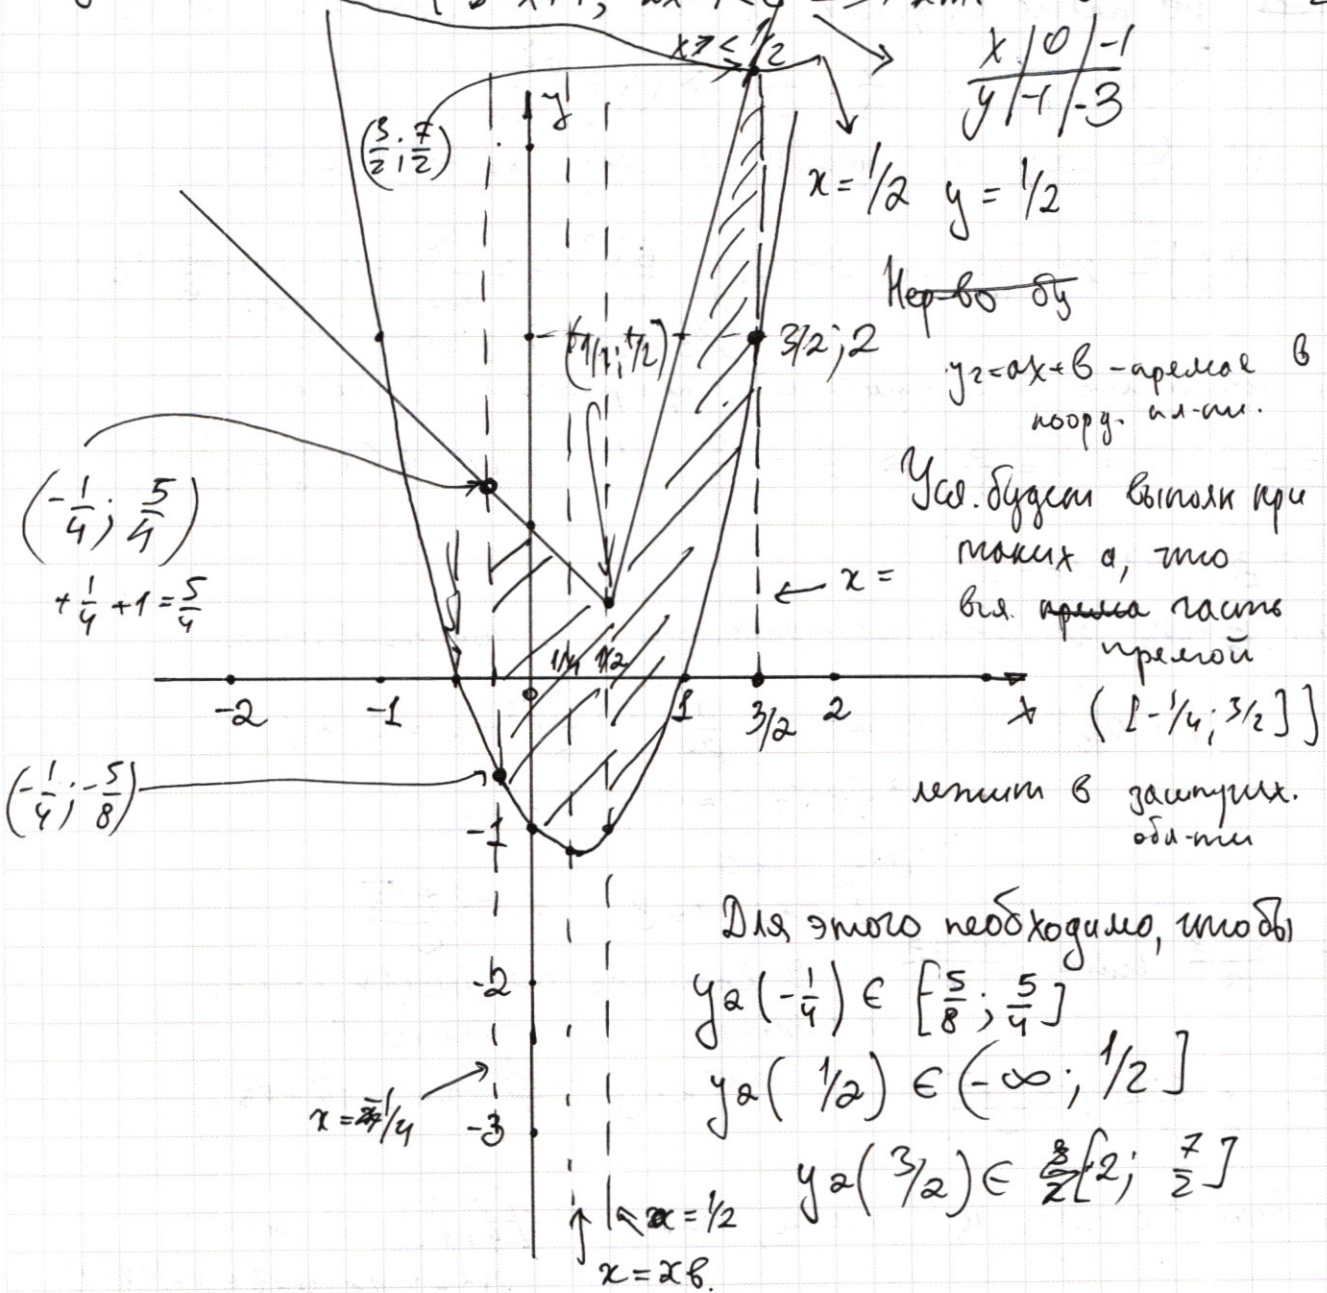 x > < 1/2
x | 0 | -1
y | -1 | -3
(3/2; 7/2)
y
x = 1/2 y = 1/2
Нер-во бу
(1/2; 1/2)
3/2; 2
y2=ax+b - прямая в
коорд. пл-ти.
(-1/4; 5/4)
+1/4 +1 = 5/4
Усл. будет выполн при
таких a, что
вся часть
прямой
([-1/4; 3/2])
лежит в заштрих.
обл-ти
x =
1/4 1/2
-2 -1 0 1 3/2 2 x
(-1/4; -5/8)
-1
Для этого необходимо, чтобы
-2
y2(-1/4) ∈ [-5/8; 5/4]
y2( 1/2) ∈ (-∞; 1/2]
x = -1/4
-3
y2( 3/2) ∈ [2; 7/2]
x = 1/2
x = xв.